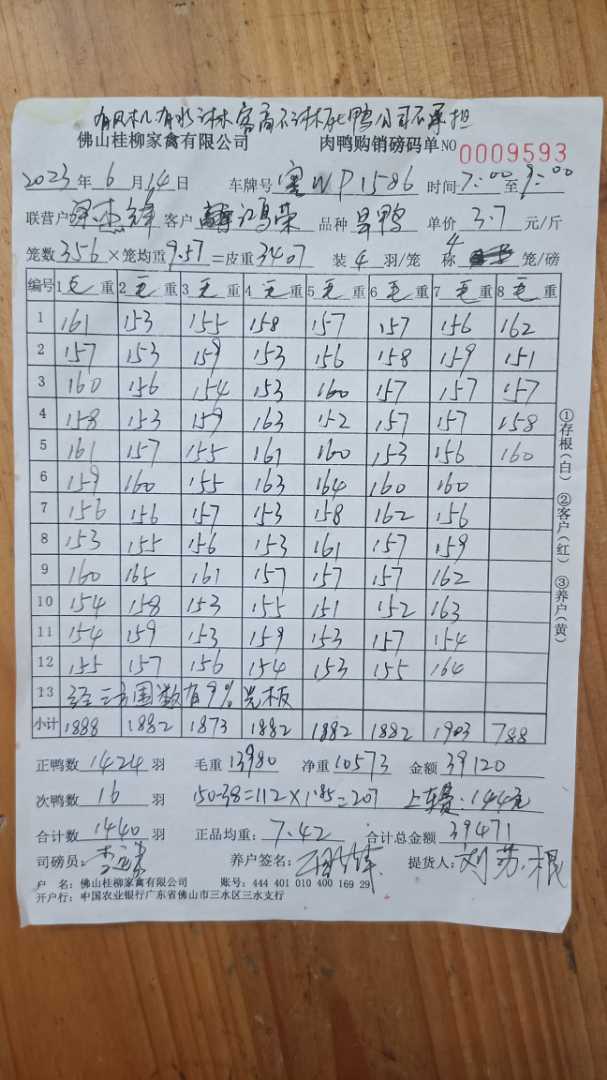 有风机.有水淋.客商不淋死鸭公司不承担
佛山桂柳家禽有限公司 肉鸭购销磅码单 NO 0009593
2023年6月14日 车牌号 WP1586 时间7:00至9:00
联营户 客户 冯荣 品种 鸭 单价 3.7 元/斤
笼数 356 ×笼均重 9.57 =皮重 3407 装 4 羽/笼 称 4 笼/磅
编号 1毛重 2毛重 3毛重 4毛重 5毛重 6毛重 7毛重 8毛重
1 161 153 155 158 157 157 156 162
2 157 153 159 153 156 158 159 151
3 160 156 154 153 160 157 157 157
4 158 153 159 163 152 157 157 158
5 161 157 155 161 160 153 156 160
6 159 160 155 163 164 160 160
7 156 156 157 153 158 162 156
8 153 155 156 153 161 157 159
9 160 165 161 157 157 157 162
10 154 158 153 155 151 152 163
11 154 159 153 159 153 157 154
12 155 157 156 154 153 155 164
13 经三方围数有9%光板
小计 1888 1882 1873 1882 1882 1882 1903 788
正鸭数 1424 羽 毛重 13980 净重 10573 金额 39120
次鸭数 16 羽 150-38=112×1.85=207 上车费:144元
合计数 1440 羽 正品均重: 7.42 合计总金额 39471
司磅员: 养户签名: 提货人: 刘苏根
户 名:佛山桂柳家禽有限公司 账号:444 401 010 400 169 29
开户行:中国农业银行广东省佛山市三水区三水支行
①存根(白) ②客户(红) ③养户(黄)